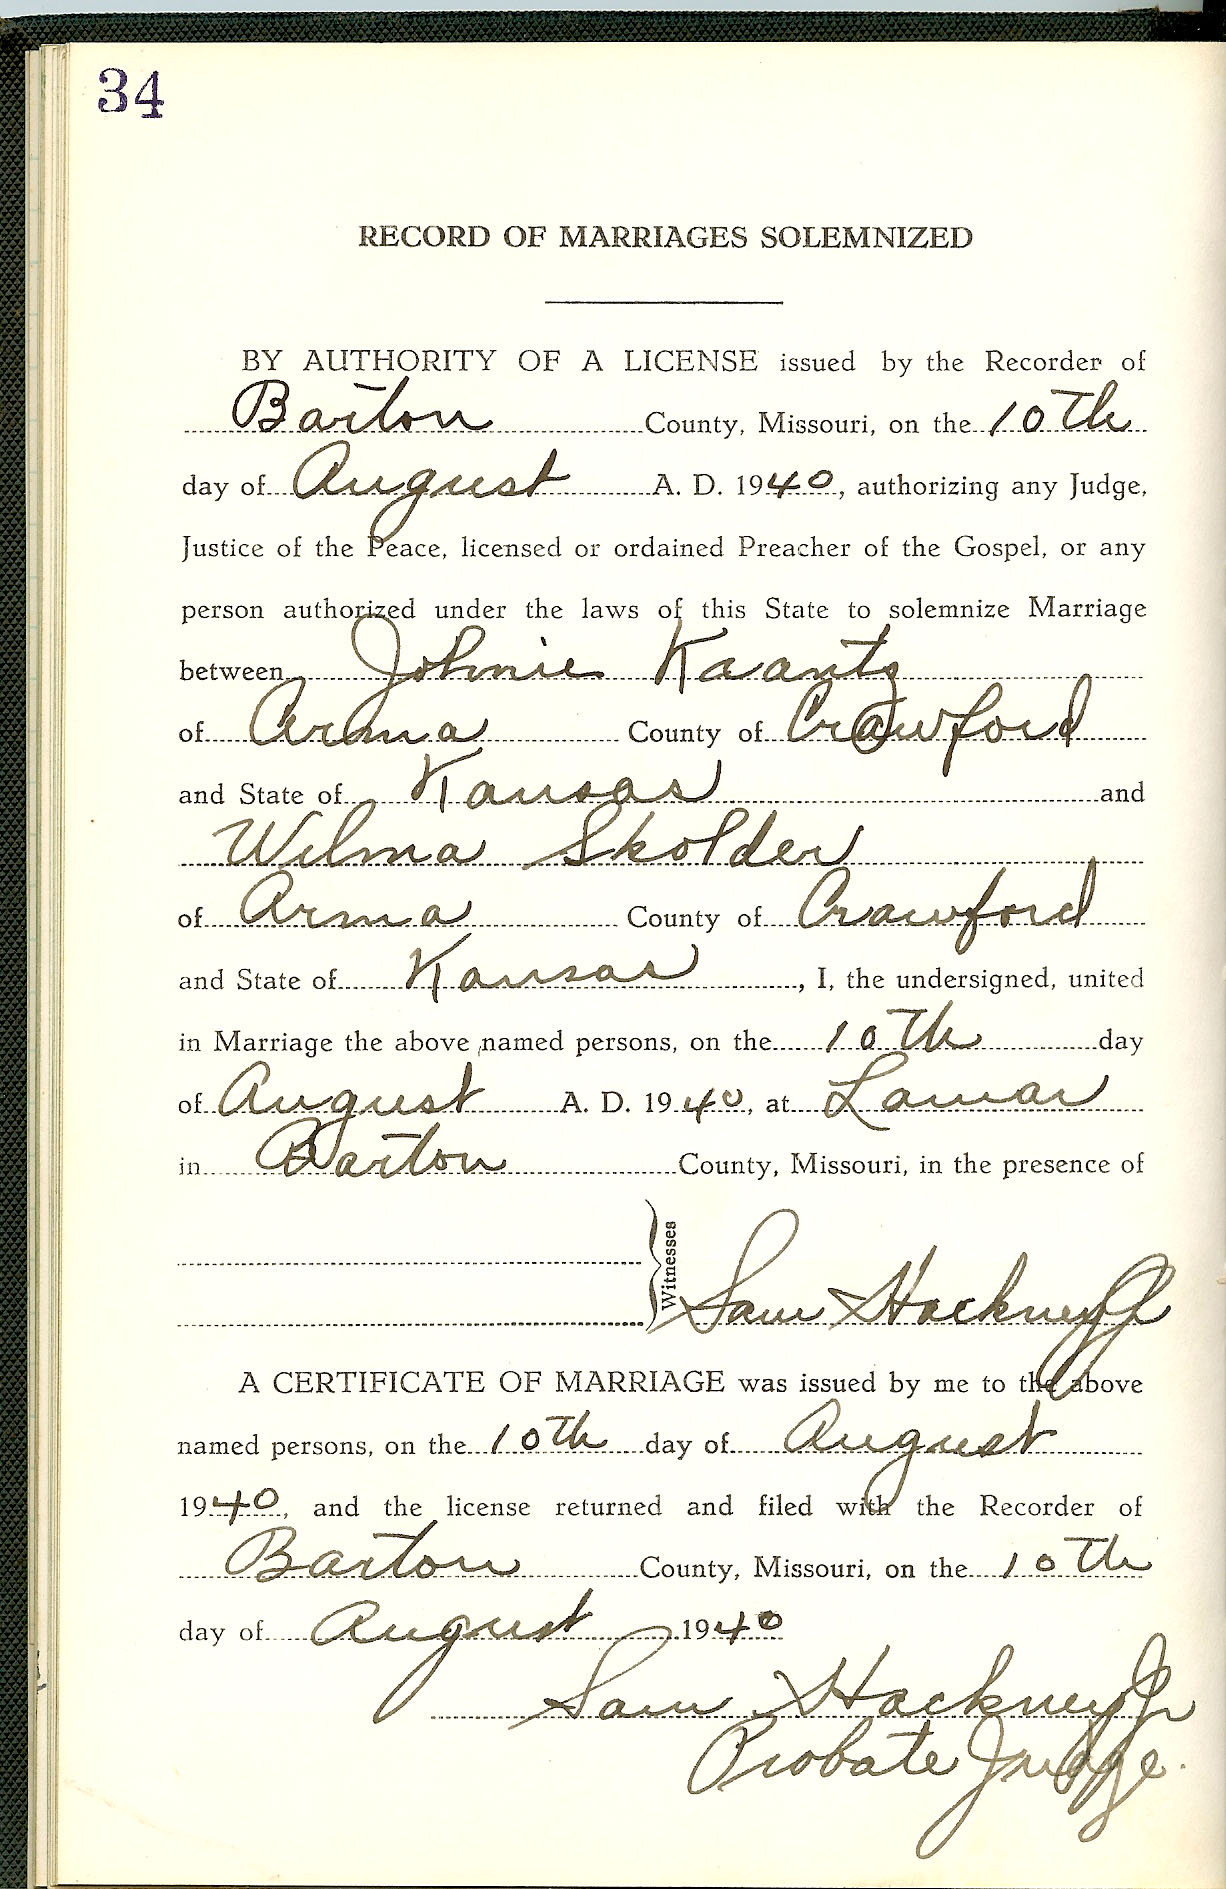 34
RECORD OF MARRIAGES SOLEMNIZED
BY AUTHORITY OF A LICENSE issued by the Recorder of
Barton County, Missouri, on the 10th
day of August A. D. 1940, authorizing any Judge,
Justice of the Peace, licensed or ordained Preacher of the Gospel, or any
person authorized under the laws of this State to solemnize Marriage
between Johnie Kaantz
of Arma County of Crawford
and State of Kansas and
Wilma Skolder
of Arma County of Crawford
and State of Kansas, I, the undersigned, united
in Marriage the above named persons, on the 10th day
of August A. D. 1940, at Lamar
in Barton County, Missouri, in the presence of
Witnesses
Sam Hackney Jr
A CERTIFICATE OF MARRIAGE was issued by me to the above
named persons, on the 10th day of August
1940, and the license returned and filed with the Recorder of
Barton County, Missouri, on the 10th
day of August 1940
Sam Hackney Jr
Probate Judge.